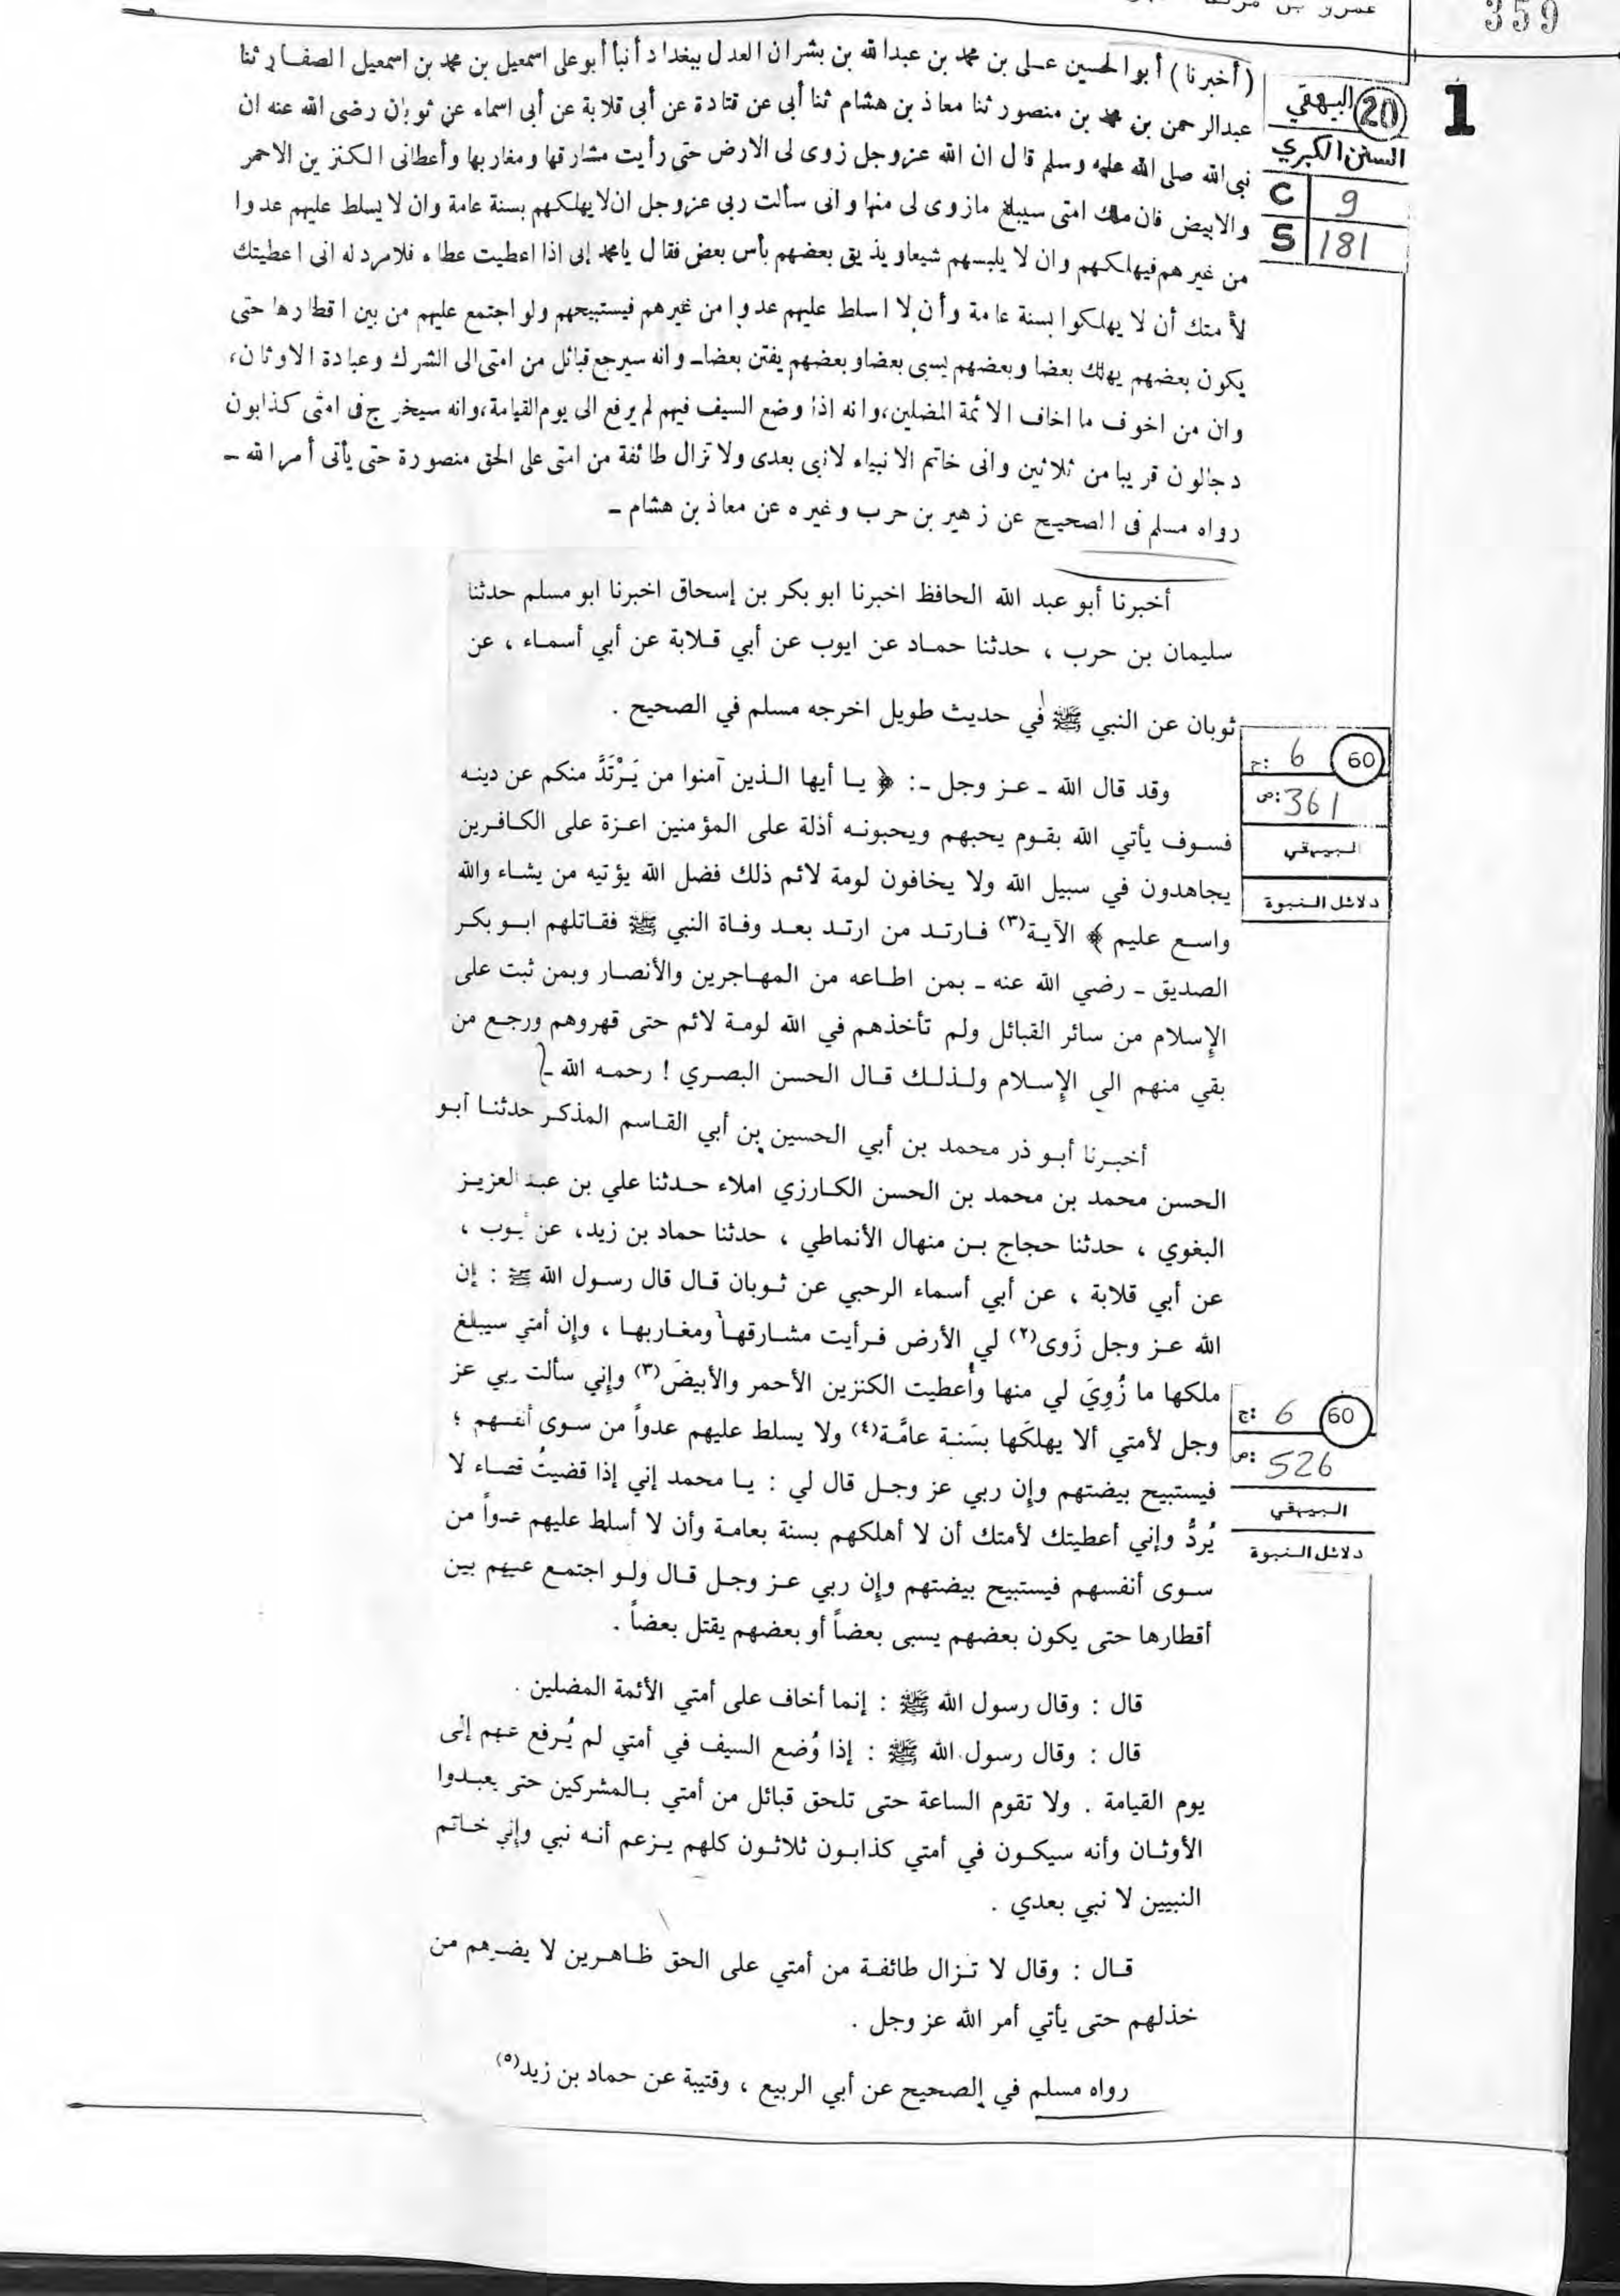 359
1
20 البيهقي
السنن الكبري
C 9
S 181
(أخبرنا) أبو الحسين عـلى بن محمد بن عبدالله بن بشران العدل ببغداد أنبأ أبو على اسمعيل بن محمد بن اسمعيل الصفـار ثنا
عبدالرحمن بن محمد بن منصور ثنا معاذ بن هشام ثنا أبى عن قتادة عن أبى قلابة عن أبى اسماء عن ثوبان رضى الله عنه ان
نبى الله صلى الله عليه وسلم قال ان الله عزوجل زوى لى الارض حتى رأيت مشارقها ومغاربها وأعطانى الكنزين الاحمر
والابيض فان ملك امتى سيبلغ مازوى لى منها وانى سألت ربى عزوجل ان لا يهلكهم بسنة عامة وان لا يسلط عليهم عدوا
من غيرهم فيهلكهم وان لا يلبسهم شيعا ويذيق بعضهم بأس بعض فقال يامحمد إنى اذا اعطيت عطاء فلامرد له انى اعطيتك
لأ متك أن لا يهلكوا بسنة عامة وأن لا اسلط عليهم عدوا من غيرهم فيستبيحهم ولو اجتمع عليهم من بين اقطارها حتى
يكون بعضهم يهلك بعضا وبعضهم يسبى بعضا وبعضهم يفتن بعضا ـ وانه سيرجع قبائل من امتى الى الشرك وعبادة الاوثان،
وان من اخوف ما اخاف الائمة المضلين، وانه اذا وضع السيف فيهم لم يرفع الى يوم القيامة، وانه سيخرج فى امتى كذابون
دجالون قريبا من ثلاثين وانى خاتم الانبياء لانبى بعدى ولا تزال طائفة من امتى على الحق منصورة حتى يأتى أمر الله ـ
رواه مسلم فى الصحيح عن زهير بن حرب وغيره عن معاذ بن هشام ـ
أخبرنا أبو عبد الله الحافظ اخبرنا ابو بكر بن إسحاق اخبرنا ابو مسلم حدثنا
سليمان بن حرب ، حدثنا حمـاد عن ايوب عن أبي قـلابة عن أبي أسمـاء ، عن
ثوبان عن النبي ﷺ في حديث طويل اخرجه مسلم في الصحيح .
60 ج: 6
ص: 361
البيهقي
دلائل النبوة
وقد قال الله ـ عـز وجل ـ : ﴿ يـا أيها الـذين آمنوا من يَـرْتَدَّ منكم عن دينـه
فسـوف يأتي الله بقـوم يحبهم ويحبونـه أذلة على المؤمنين اعـزة على الكـافـرين
يجاهدون في سبيل الله ولا يخافون لومة لائم ذلك فضل الله يؤتيه من يشـاء والله
واسـع عليم ﴾ الآيـة(٣) فـارتـد من ارتـد بعـد وفـاة النبي ﷺ فقـاتلهم ابـو بكـر
الصديق ـ رضي الله عنه ـ بمن اطـاعه من المهـاجرين والأنصـار وبمن ثبت على
الإسلام من سائر القبائل ولم تأخذهم في الله لومـة لائم حتى قهروهم ورجـع من
بقي منهم الى الإسـلام ولـذلـك قـال الحسن البصـري ! رحمـه الله ـ
أخبـرنا أبـو ذر محمد بن أبي الحسين بن أبي القـاسم المذكـر حدثنـا أبـو
الحسن محمد بن محمد بن الحسن الكـارزي املاء حـدثنا علي بن عبد العزيـز
البغوي ، حدثنا حجاج بـن منهال الأنماطي ، حدثنا حماد بن زيد، عن أيوب ،
عن أبي قلابة ، عن أبي أسماء الرحبي عن ثـوبان قـال قال رسـول الله ﷺ : إن
الله عـز وجل زَوى(٢) لي الأرض فـرأيت مشـارقهـا ومغـاربهـا ، وإن أمتي سيبلغ
ملكها ما زُوِيَ لي منها وأُعطيت الكنزين الأحمر والأبيضَ(٣) وإني سألت ربي عز
60 ج: 6
ص: 526
البيهقي
دلائل النبوة
وجل لأمتي ألا يهلكَها بسَنـة عامَّـة(٤) ولا يسلط عليهم عدواً من سوى أنفسهم ؛
فيستبيح بيضتهم وإن ربي عز وجـل قال لي : يـا محمد إني إذا قضيتُ قضـاء لا
يُردُّ وإني أعطيتك لأمتك أن لا أهلكهم بسنة بعامـة وأن لا أسلط عليهم عدواً من
سـوى أنفسهم فيستبيح بيضتهم وإن ربي عـز وجـل قـال ولـو اجتمـع عليهم بين
أقطارها حتى يكون بعضهم يسبى بعضاً أو بعضهم يقتل بعضاً .
قال : وقال رسول الله ﷺ : إنما أخاف على أمتي الأئمة المضلين .
قال : وقال رسول الله ﷺ : إذا وُضع السيف في أمتي لم يُـرفع عنهم إلى
يوم القيامة . ولا تقوم الساعة حتى تلحق قبائل من أمتي بـالمشركين حتى يعبـدوا
الأوثـان وأنه سيكـون في أمتي كذابـون ثلاثـون كلهم يـزعم أنـه نبي وإني خـاتم
النبيين لا نبي بعدي .
قـال : وقال لا تـزال طائفـة من أمتي على الحق ظـاهـرين لا يضـرهم من
خذلهم حتى يأتي أمر الله عز وجل .
رواه مسلم في الصحيح عن أبي الربيع ، وقتيبة عن حماد بن زيد(٥)